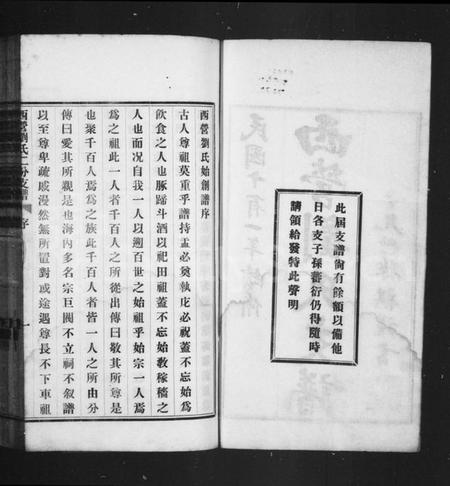 此屆支譜尙有餘額以備他
日各支子孫蕃衍仍得隨時
請領給發特此聲明
西營劉氏始創譜序
古人尊祖莫重乎譜持盂必奠執庀必祝蓋不忘始為
飮食之人也豚蹄斗酒以祀田祖蓋不忘始敎稼穡之
人也而況自我一人以遡百世之始祖乎始宗一人焉
為之祖此一人者千百人之所從出傳曰敬其所尊是
也聚千百人焉為之族此千百人者皆一人之所由分
傳曰愛其所親是也海內多名宗巨閥不立祠不叙譜
以至尊卑疏戚漫然無所置對或途遇尊長不下車祖
西營劉氏二分支譜 序 一
民國十有一年